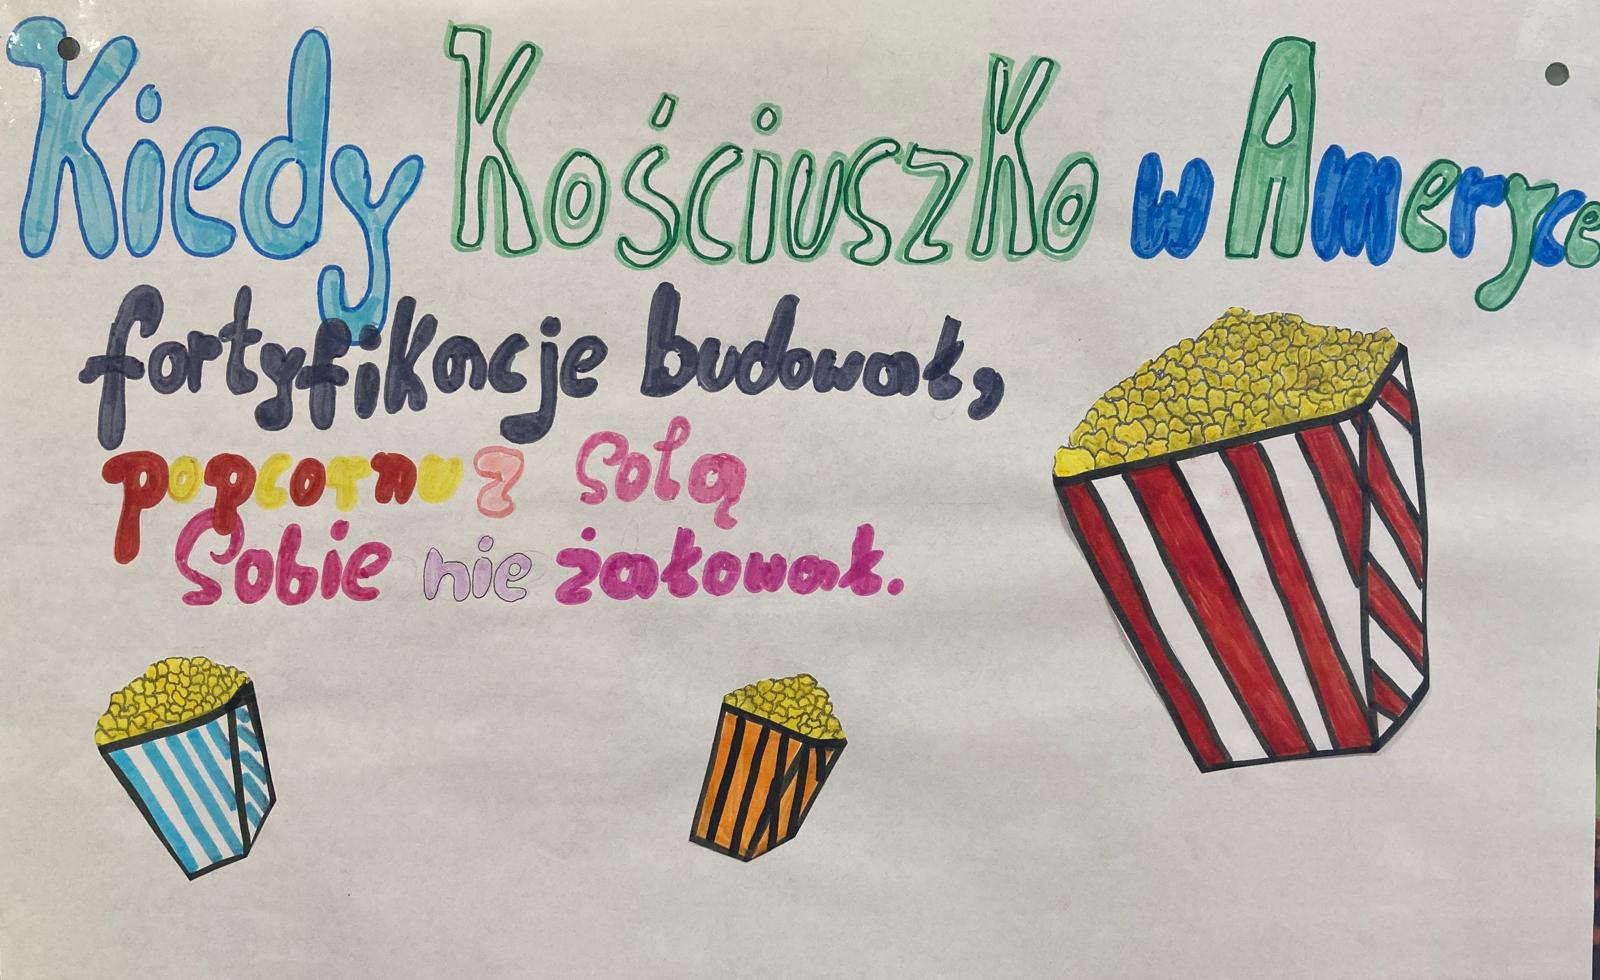 Kiedy Kościuszko w Ameryce
fortyfikacje budował,
popcornu z solą
Sobie nie żałował.